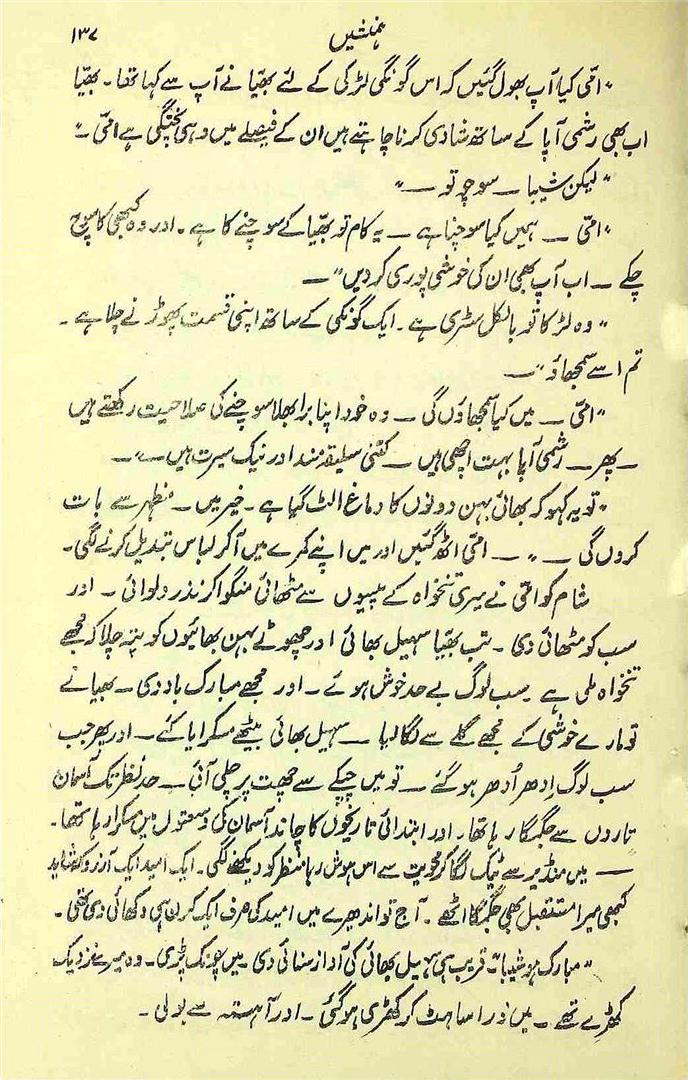 ہمنشیں ۱۳۷
"امّی کیا آپ بھول گئیں کہ اس گونگی لڑکی کے لئے بھیّا نے آپ سے کہا تھا۔ بھیّا
اب بھی رشمی آپا کے ساتھ شادی کرنا چاہتے ہیں ان کے فیصلے میں وہی پختگی ہے امّی۔"
"لیکن شیبا — سوچو تو —"
"امّی — ہمیں کیا سوچنا ہے — یہ کام تو بھیّا کے سوچنے کا ہے۔ اور وہ کبھی کا سوچ
چکے — اب آپ بھی ان کی خوشی پوری کر دیں" —
"وہ لڑکا تو بالکل سڑی ہے۔ ایک گونگی کے ساتھ اپنی قسمت پھوڑنے چلا ہے۔
تم اسے سمجھاؤ" —
"امّی — میں کیا سمجھاؤں گی — وہ خود اپنا برا بھلا سوچنے کی صلاحیت رکھتے ہیں
— پھر — رشمی آپا بہت اچھی ہیں — کتنی سلیقہ مند اور نیک سیرت ہیں —" —
"تو یہ کہو کہ بھائی بہن دونوں کا دماغ الٹ گیا ہے۔ خیر میں — مظہر سے بات
کروں گی — " — امّی اٹھ گئیں اور میں اپنے کمرے میں آکر لباس تبدیل کرنے لگی۔
شام کو امّی نے میری تنخواہ کے پیسوں سے مٹھائی منگوا کر نذر دلوائی۔ اور
سب کو مٹھائی دی۔ تب بھیّا سہیل بھائی اور چھوٹے بہن بھائیوں کو پتہ چلا کہ مجھے
تنخواہ ملی ہے۔ سب لوگ بے حد خوش ہوئے۔ اور مجھے مبارک باد دی۔ بھیا نے
تو مارے خوشی کے مجھے گلے سے لگا لیا — سہیل بھائی بیٹھے مسکرایا کئے — اور پھر جب
سب لوگ اِدھر اُدھر ہو گئے — تو میں چپکے سے چھت پر چلی آئی — حد نظر تک آسمان
تاروں سے جگمگا رہا تھا۔ اور ابتدائی تاریخوں کا چاند آسمان کی وسعتوں میں مسکرا رہا تھا۔
— میں منڈیر سے ٹیک لگا کر محویت سے اس ہوش ربا منظر کو دیکھنے لگی۔ ایک امید ایک آرزو کہ شاید
کبھی میرا مستقبل بھی جگمگا اٹھے۔ آج تو اندھیرے میں امید کی صرف ایک کرن ہی دکھائی دی تھی۔
"مبارک ہو شیبا" قریب ہی سہیل بھائی کی آواز سنائی دی۔ میں چونک پڑی۔ وہ میرے نزدیک
کھڑے تھے۔ میں ذرا سا ہٹ کر کھڑی ہو گئی۔ اور آہستہ سے بولی۔